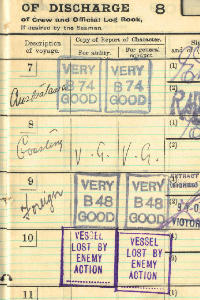 OF DISCHARGE 8
of Crew and Official Log Book,
if desired by the Seaman.
Description of voyage.
Copy of Report of Character.
For ability.
For general conduct.
7
Australasia
VERY B74 GOOD
VERY B74 GOOD
(1)
(2)
8
Coasting
V. G.
V. G.
(1)
(2)
9
Foreign
VERY B48 GOOD
VERY B48 GOOD
(2)
VICTOR
10
VESSEL LOST BY ENEMY ACTION
VESSEL LOST BY ENEMY ACTION
(1)
(2)
11